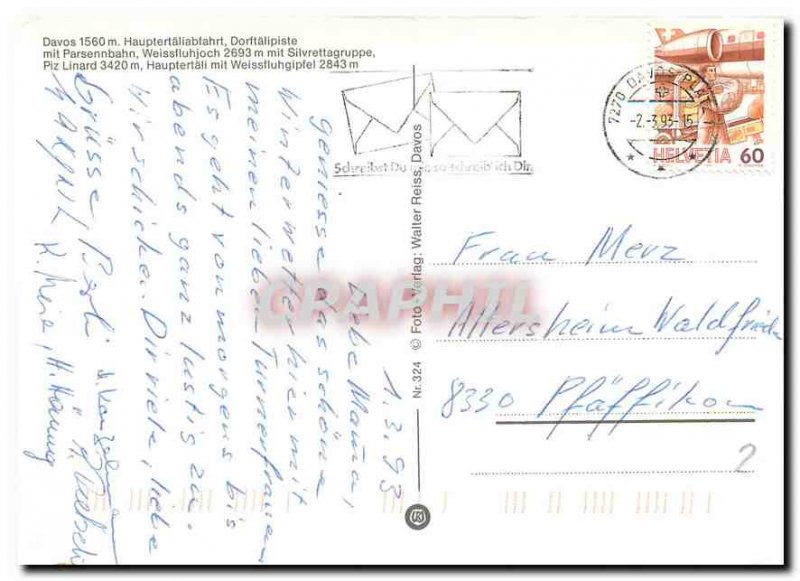 Davos 1560 m. Hauptertäliabfahrt, Dorftälipiste
mit Parsennbahn, Weissfluhjoch 2693 m mit Silvrettagruppe,
Piz Linard 3420 m, Hauptertäli mit Weissfluhgipfel 2843 m
Schreibst Du mir so schreib ich Dir
7270 DAVOS PLATZ
-2.-3.93-15
HELVETIA 60
1.3.93
Liebe Mama,
geniesse das schöne
Winterwetter hier mit
meinen lieben Turnerfrauen
Es geht von morgens bis
abends ganz lustig zu.
Wir schicken Dir viele, liebe
Grüsse,
K. Meier, H. Hornung
Nr. 324 © Foto + Verlag: Walter Reiss, Davos
Frau Merz
Altersheim Waldfrieden
8330 Pfäffikon
2
CPAPHIL